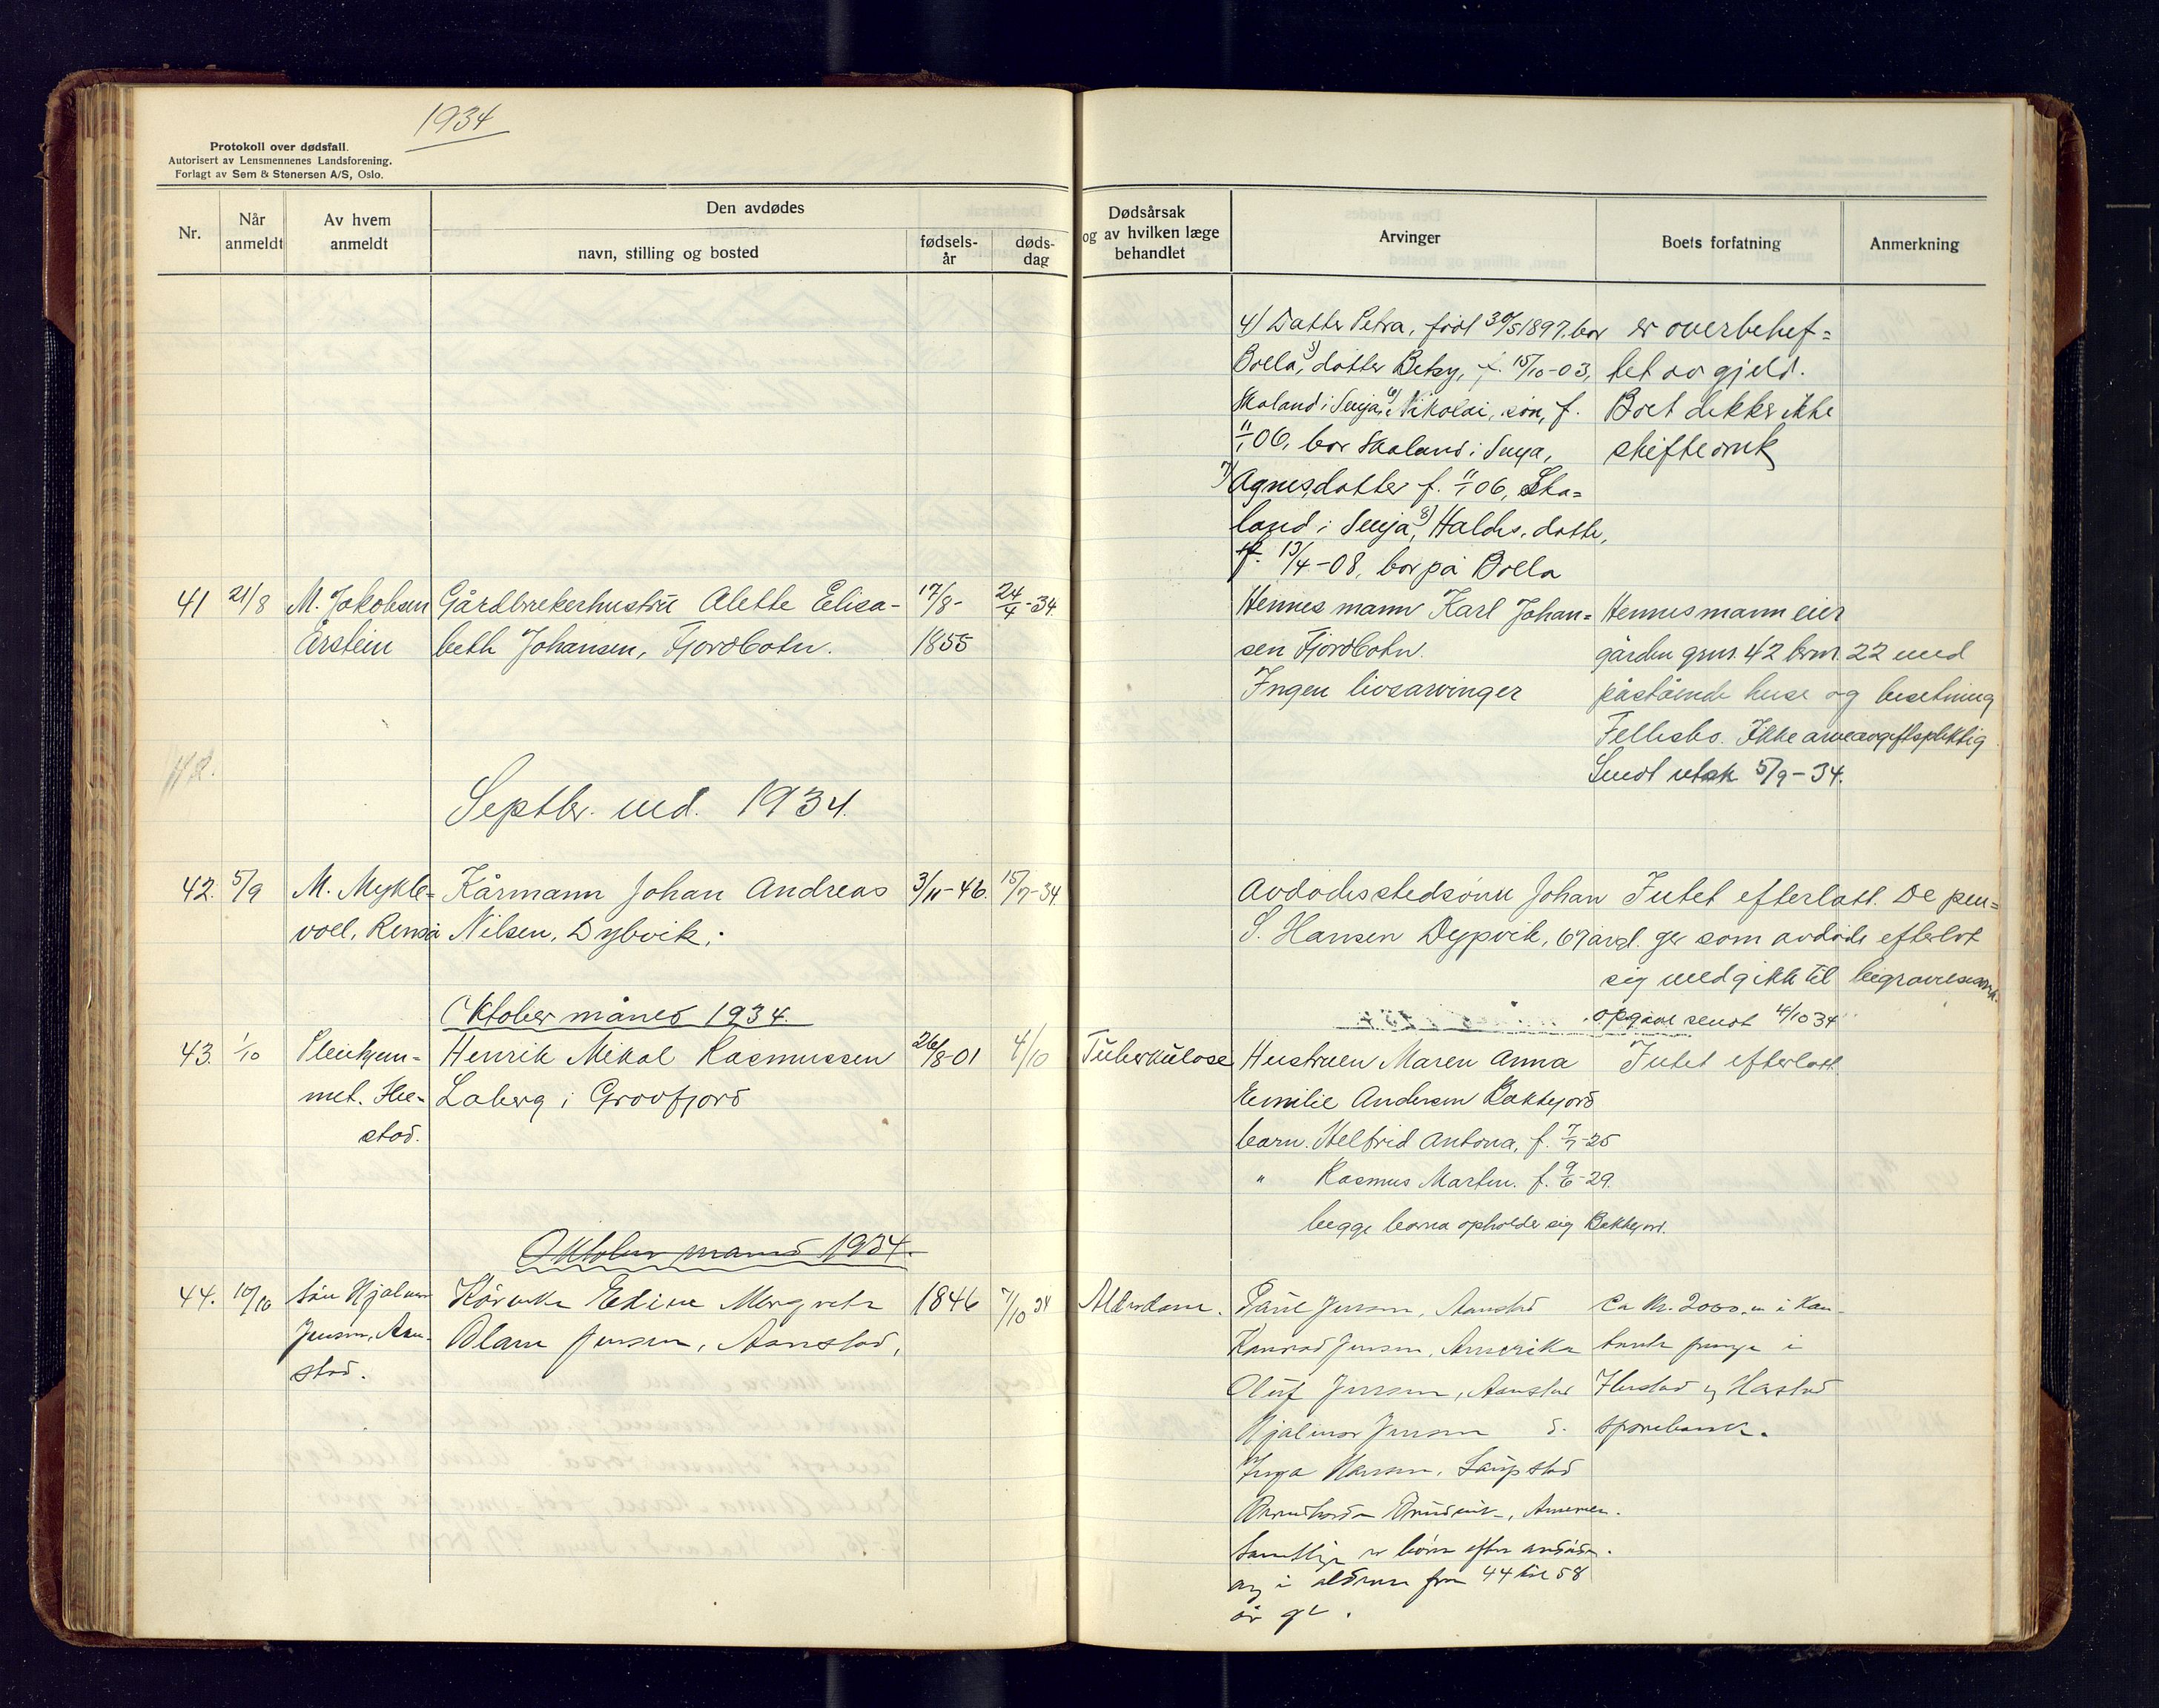 1934
Protokoll over dødsfall.
Autorisert av Lensmennenes Landsforening.
Forlagt av Sem & Stenersen A/S, Oslo.
Nr.
Når anmeldt
Av hvem anmeldt
Den avdødes
navn, stilling og bosted
fødsels-år
døds-dag
Dødsårsak
og av hvilken læge
behandlet
Arvinger
Boets forfatning
Anmerkning
4) Datter Petra, född 30/5 1897, bor
Bolla, 5) datter Betzy, f. 15/10-03,
Skaland i Senja, 6) Nikolai, søn, f.
11/1 06, bor Skaland i Senja,
7) Agnes, datter f. 11/1 06, Ska=
land i Senja, 8) Haldis, datter,
f. 13/4-08, bor på Bolla
er overbehef=
tet av gjeld.
Boet dekker ikke
skifteomk
41 21/8 M. Jakobsen Gårdbrukerhustru Alette Elisa- 17/8- 24/4-34
Årstein beth Johansen, Fjordbotn. 1855
Hennes mann Karl Johan=
sen Fjordbotn.
Ingen livsarvinger
Hennes mann eier
gården gnr. 42 brnr. 22 med
påstående huse og besetning
Fellesbo. Ikke arveavgiftspliktig
Sendt utsk 5/9-34.
42.
Septbr. md. 1934.
42. 5/9 M. Mykle= Kårmann Johan Andreas 3/11-46. 15/7-34
voll, Renså Nilsen, Dybvik.
Avdødes stedsønn Johan
S. Hansen Dypvik, 67 år gl.
Intet efterlatt. De pen=
ger som avdøde efterlot
sig medgikk til begravelsesomk.
opgave sendt 4/10 34
Oktober måned 1934.
43. 1/10 Pleiehjem- Henrik Mikal Rasmussen 26/8-01 4/10 Tuberkulose
met. Ibe- Laberg i Grovfjord
stad.
Hustruen Maren Anna
Emilie Andersen Bakkejord
barn. Helfrid Antona, f. 7/7-25
" Rasmus Martin. f. 9/6-29.
begge barna opholder sig Bakkejord.
Intet efterlatt.
Oktober måned 1934.
44. 10/10 Søn Hjalmar Kårenke Edine Margrete 1846 7/10 34 Alderdom.
Jensen, Aan- Olava Jensen, Aanstad,
stad.
Paul Jensen, Aanstad
Konrad Jensen, Amerika
Oluf Jensen, Aanstad
Hjalmar Jensen d.
Inga Hansen, Laupstad
Amerika.
Samtlige er børn efter avdøde
og i alderen fra 44 til 58
år gl.
Ca kr. 2000.00 i kon-
tante penge i
Ibestad og Harstad
sparebank.